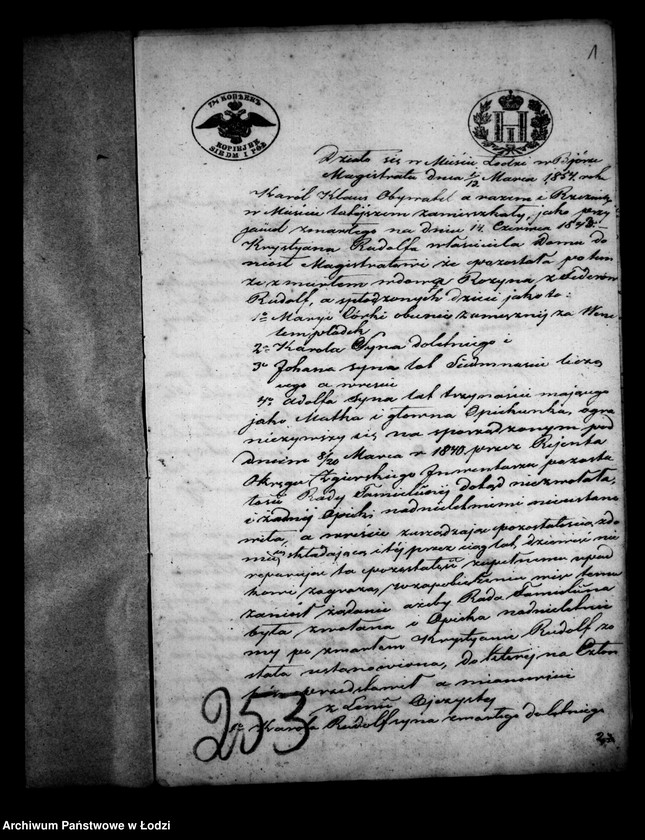 1
7½ КОПѢЕКЪ
KOPIEJEK
SIEDM I PÓŁ
Działo się w Mieście Łodzi w Biórze
Magistratu dnia 1/12 Marca 1854 roku
Karól Klaus Obywatel a razem i Rzeźnik
w Mieście tutejszem zamieszkały, jako przy
jaciel zmarłego na dniu 14 Czerwca
Krystyana Rudolfa właściciela Domu do
niosł Magistratowi że pozostała po tem
że zmarłem wdowa Rozyna z Federów
Rudolf, a spłodzonych dzieci jako to:
1o Maryi Córki obecnie zamężnej za
2o Karola Syna doletniego i
3o Johana syna lat Siedmnaście liczą
cego a wreście
4o Adolfa Syna lat trzynaście mającego
jako Matka i główna Opiekunka, ogra
niczywszy się na sporządzonym pod
dniem 8/20 Marca r 1840 przez Rejenta
Okręgu Zgierskiego Inwentarzu pozosta
łości Rady Familijnéj dotąd niezwołała,
i żadnéj Opieki nad nieletniemi nieustano
wiła, a wreście zarządzając pozostałością z do
mu składającą się i téj przez ciąg lat dziewięciu nie
reparując ta pozostałość zupełnemu upad
kowi zagraża, w zapobieżeniu więc temu
zaniósł żądanie ażeby Rada Familijna
była zwołana i Opieka nad nieletnie
my po zmarłem Krystyanie Rudolf zo
stała ustanowiona, do któréj na Człon
ków przedstawił a mianowicie
z Linii Ojczystéj
1o Karola Rudolf syna zmarłego doletniego
253
Archiwum Państwowe w Łodzi